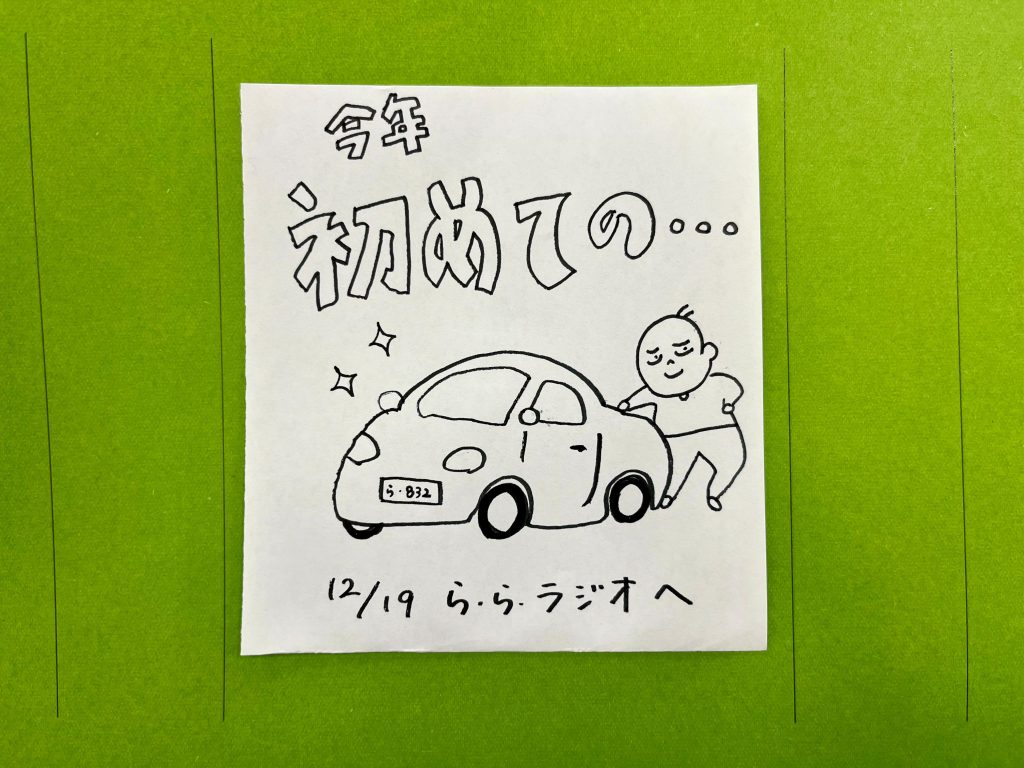 今年
初めての...
ら・832
12/19 ら.ら.ラジオへ